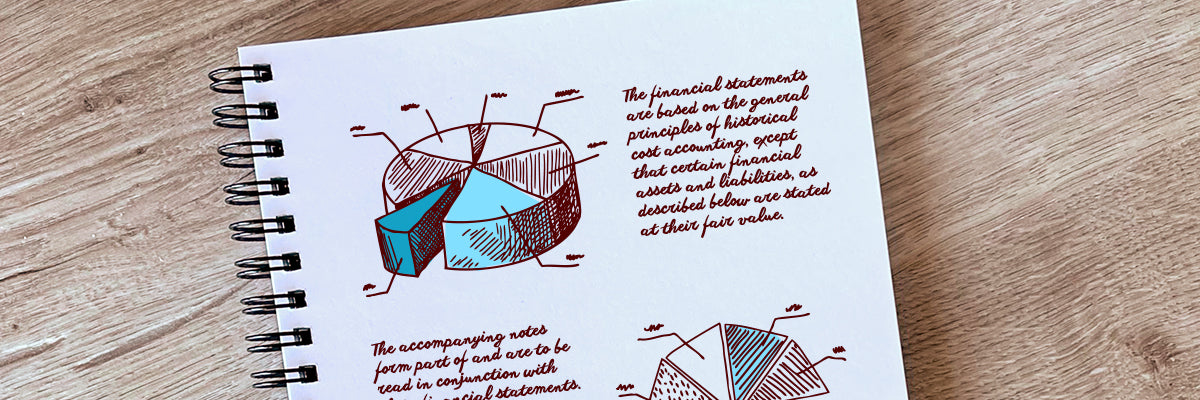 The financial statements
are based on the general
principles of historical
cost accounting, except
that certain financial
assets and liabilities, as
described below are stated
at their fair value.
The accompanying notes
form part of and are to be
read in conjunction with
financial statements.